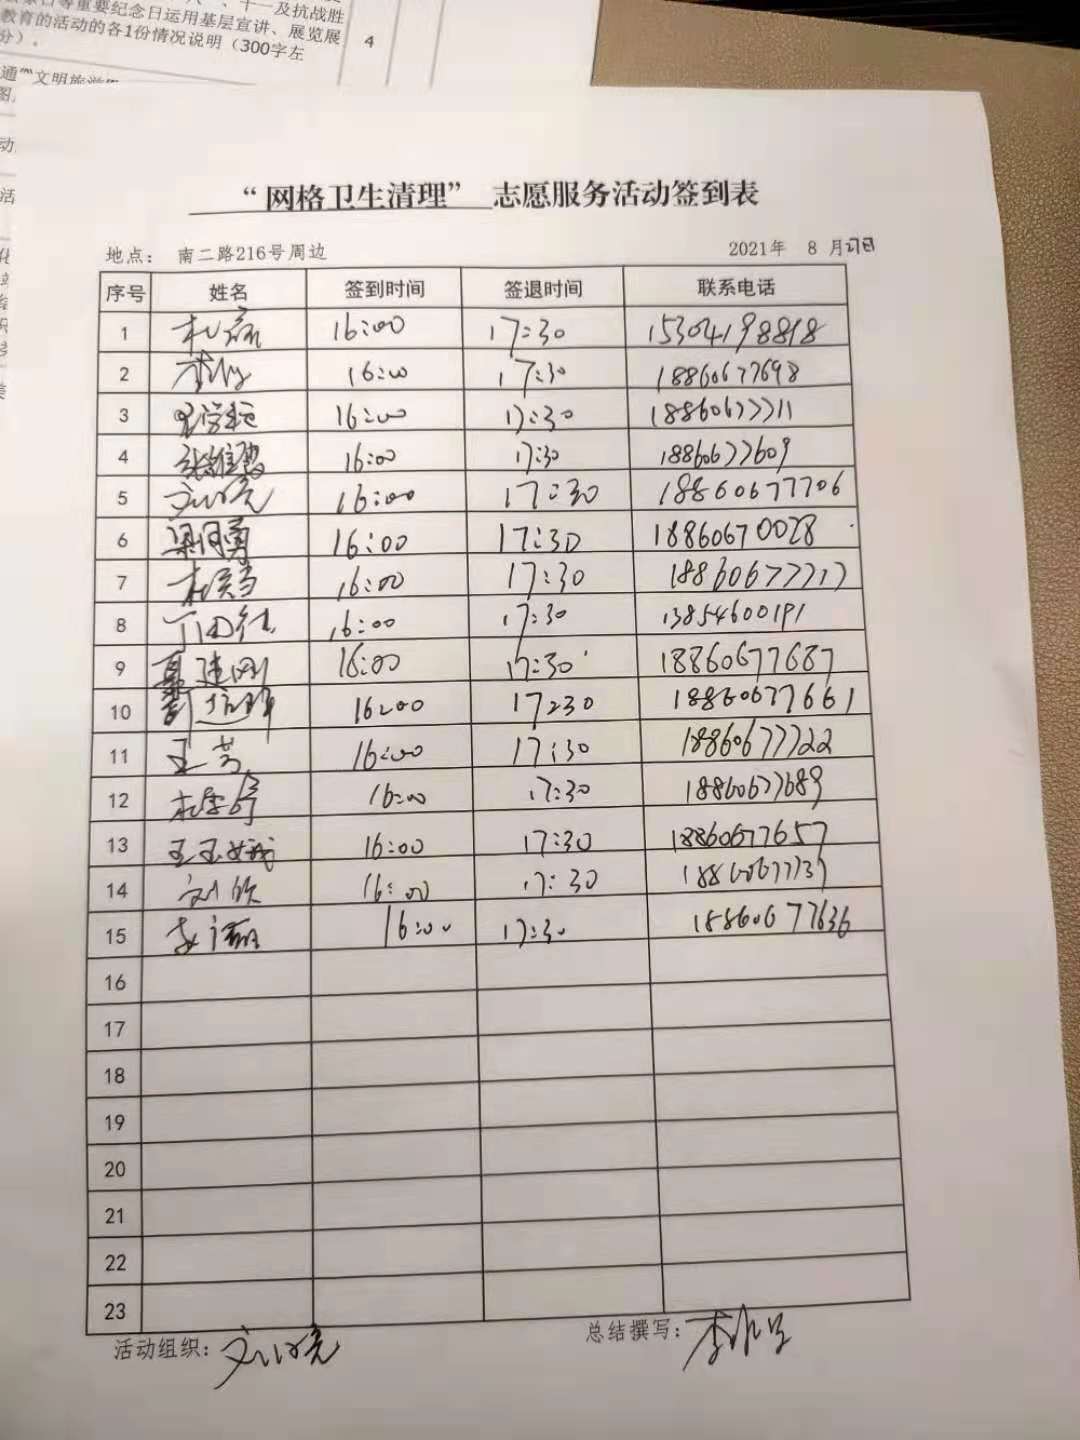 等重要纪念日运用基层宣讲、展览展
教育的活动的各1份情况说明（300字左
分）。
4
“网格卫生清理” 志愿服务活动签到表
地点： 南二路216号周边 2021年 8 月27日
序号 姓名 签到时间 签退时间 联系电话
1 16:00 17:30 15304198818
2 16:00 17:30 18860677698
3 16:00 17:30 18860677711
4 16:00 17:30 18860677609
5 刘晓 16:00 17:30 18860677706
6 16:00 17:30 18860670028
7 16:00 17:30 18860677717
8 16:00 17:30 13854600191
9 聂建刚 16:00 17:30 18860677687
10 16:00 17:30 18860677661
11 王芳 16:00 17:30 18860677722
12 16:00 17:30 18860677689
13 王玉娥 16:00 17:30 18860677657
14 刘欣 16:00 17:30 18860677737
15 16:00 17:30 18860677636
16
17
18
19
20
21
22
23
活动组织：刘晓 总结撰写：